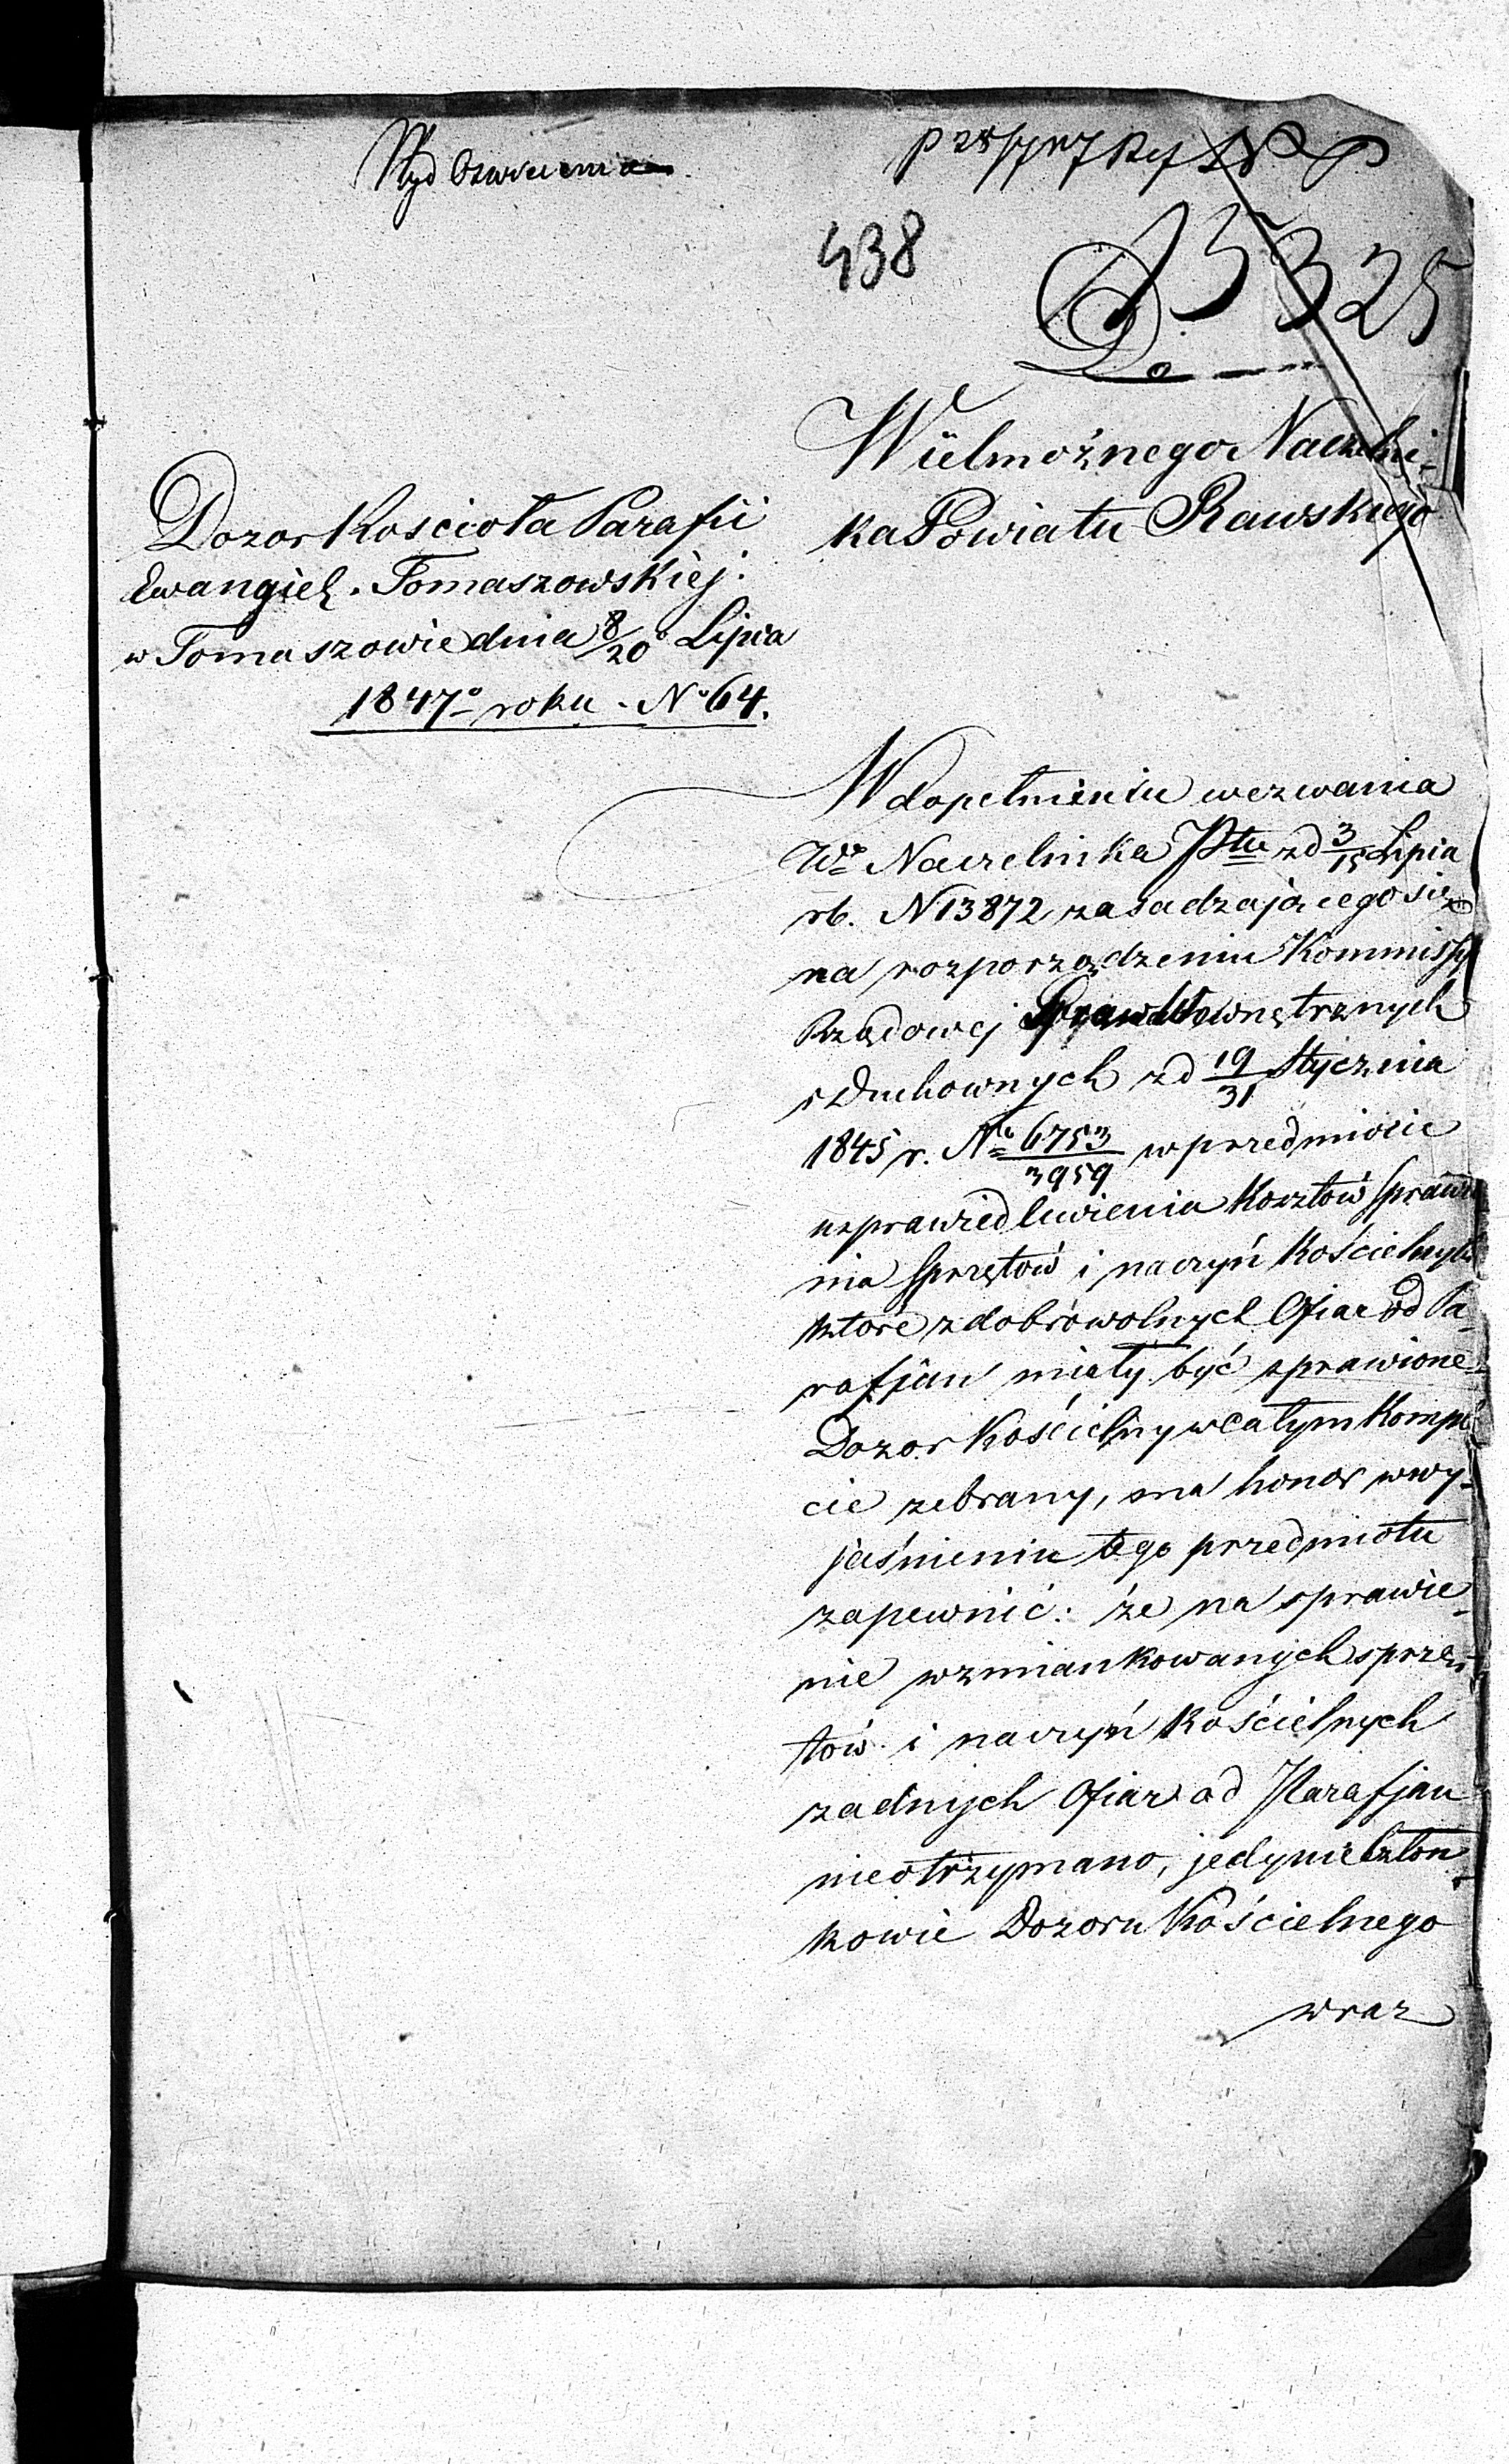 438
15325
Do
Wielmożnego Naczelni-
ka Powiatu Rawskiego
Dozor Kościoła Parafii
Ewangiel. Tomaszowskiéj.
w Tomaszowie dnia 8/20 Lipca
1847o roku. No 64.
W dopełnieniu wezwania
Wo Naczelnika Ptu z d 3/15 Lipca
rb. N 13872 zasadzającego się
na rozporządzeniu Kommissyi
Rządowej Spraw Wewnętrznych
i Duchownych z d 19/31 Stycznia
1845 r. No 6753/3959 w przedmiocie
usprawiedliwienia Kosztów sprawie
nia sprzętów i naczyń Kościelnych
które z dobrowolnych Ofiar od Pa-
rafjan miały być sprawione
Dozor Kościelny w całym Komple
cie zebrany, ma honor w wy-
jaśnieniu tego przedmiotu
zapewnić: że na sprawie-
nie wzmiankowanych sprzę-
tów i naczyń Kościelnych
żadnych Ofiar od Parafjan
nieotrzymano, jedynie Człon-
kowie Dozoru Kościelnego
wraz